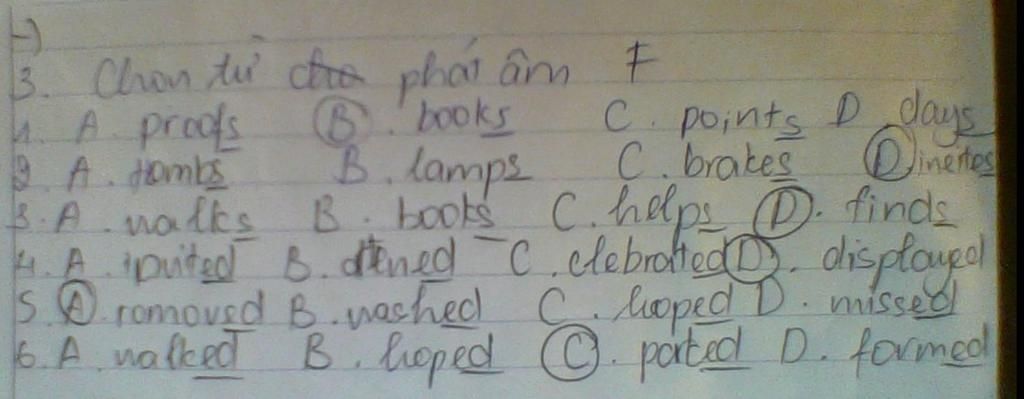 3. Chọn từ phát âm ≠
1. A. proofs B. books C. points D. days
2. A. tombs B. lamps C. brakes D.
3. A. walks B. books C. helps D. finds
4. A. B. C. D. displayed
5. A. romoved B. washed C. hoped D. missed
6. A. walked B. hoped C. ported D. formed